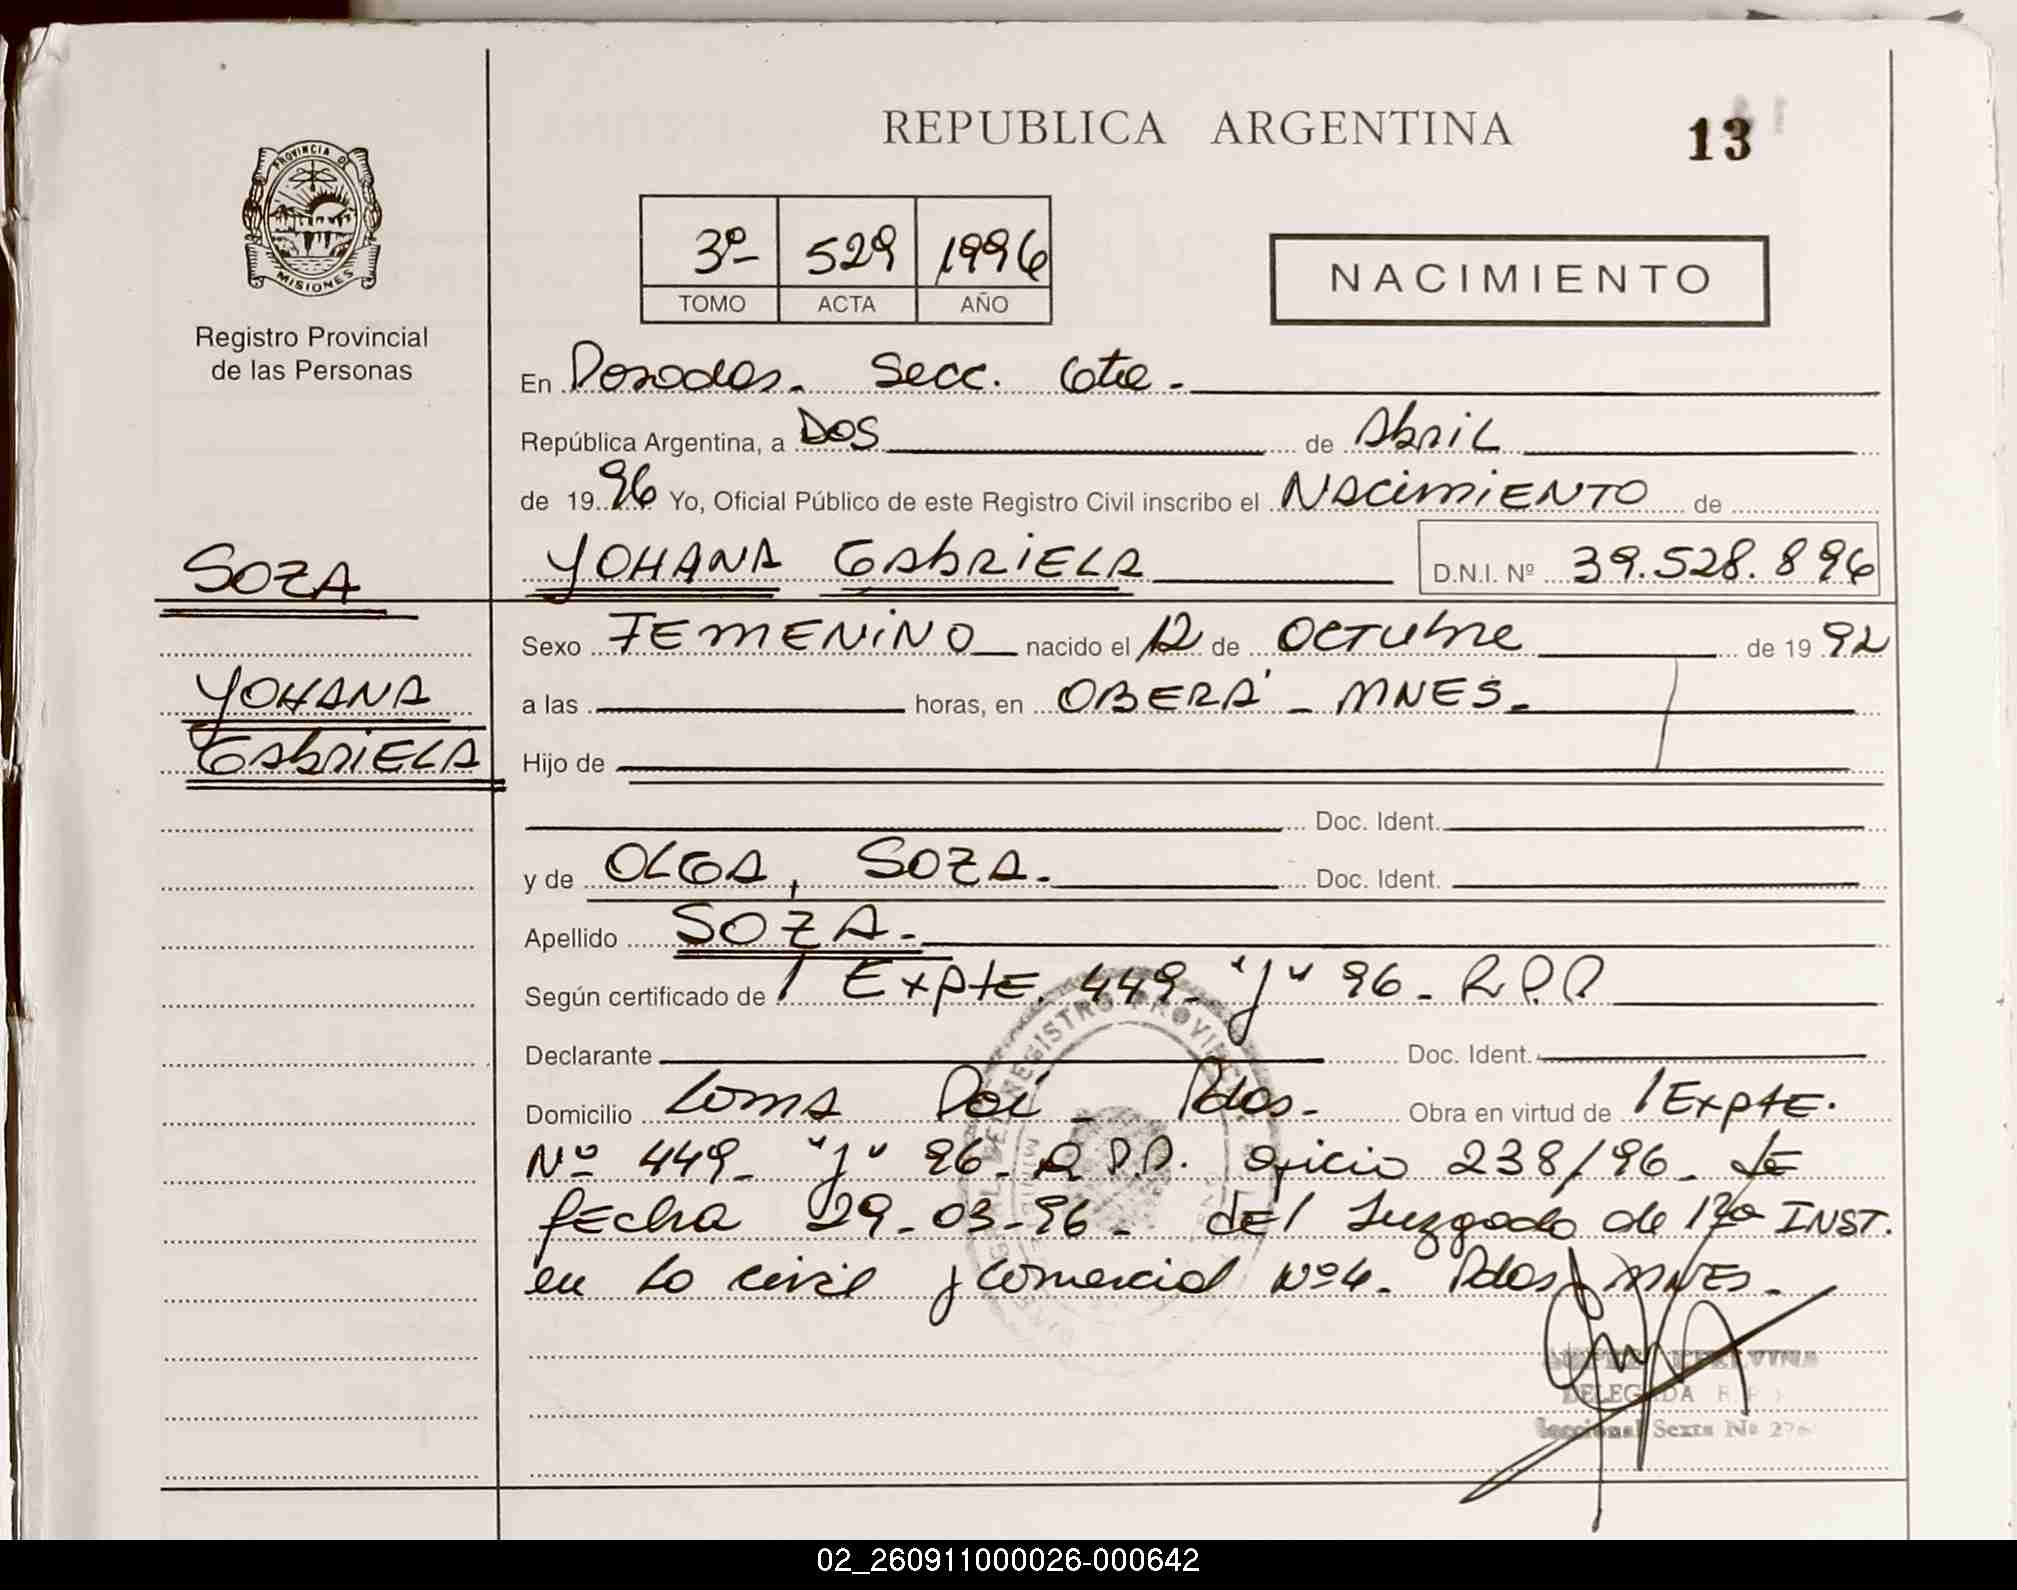 REPUBLICA ARGENTINA
13
PROVINCIA DE
MISIONES
Registro Provincial
de las Personas
3º 529 1996
TOMO ACTA AÑO
NACIMIENTO
En Posadas. Secc. 6ta.
República Argentina, a Dos de Abril
de 1996 Yo, Oficial Público de este Registro Civil inscribo el NACIMIENTO de
YOHANA GABRIELA D.N.I. Nº 39.528.896
SOZA
YOHANA
GABRIELA
Sexo FEMENINO nacido el 12 de OCTUBRE de 1992
a las horas, en OBERÁ - MNES.
Hijo de
Doc. Ident.
y de OLGA, SOZA. Doc. Ident.
Apellido SOZA.
Según certificado de / Expte. 449 - "J" 96 - R.P.P
Declarante Doc. Ident.
Domicilio Loma Poi - Pdas. Obra en virtud de / Expte.
Nº 449 - "J" 96 - R.P.P. oficio 238/96 - de
fecha 29-03-96 - del Juzgado de 1ra INST.
en lo civil y Comercial Nº 4. Pdas MNES.
DELEGADA R.P.
Seccional Sexta Nº
02_260911000026-000642